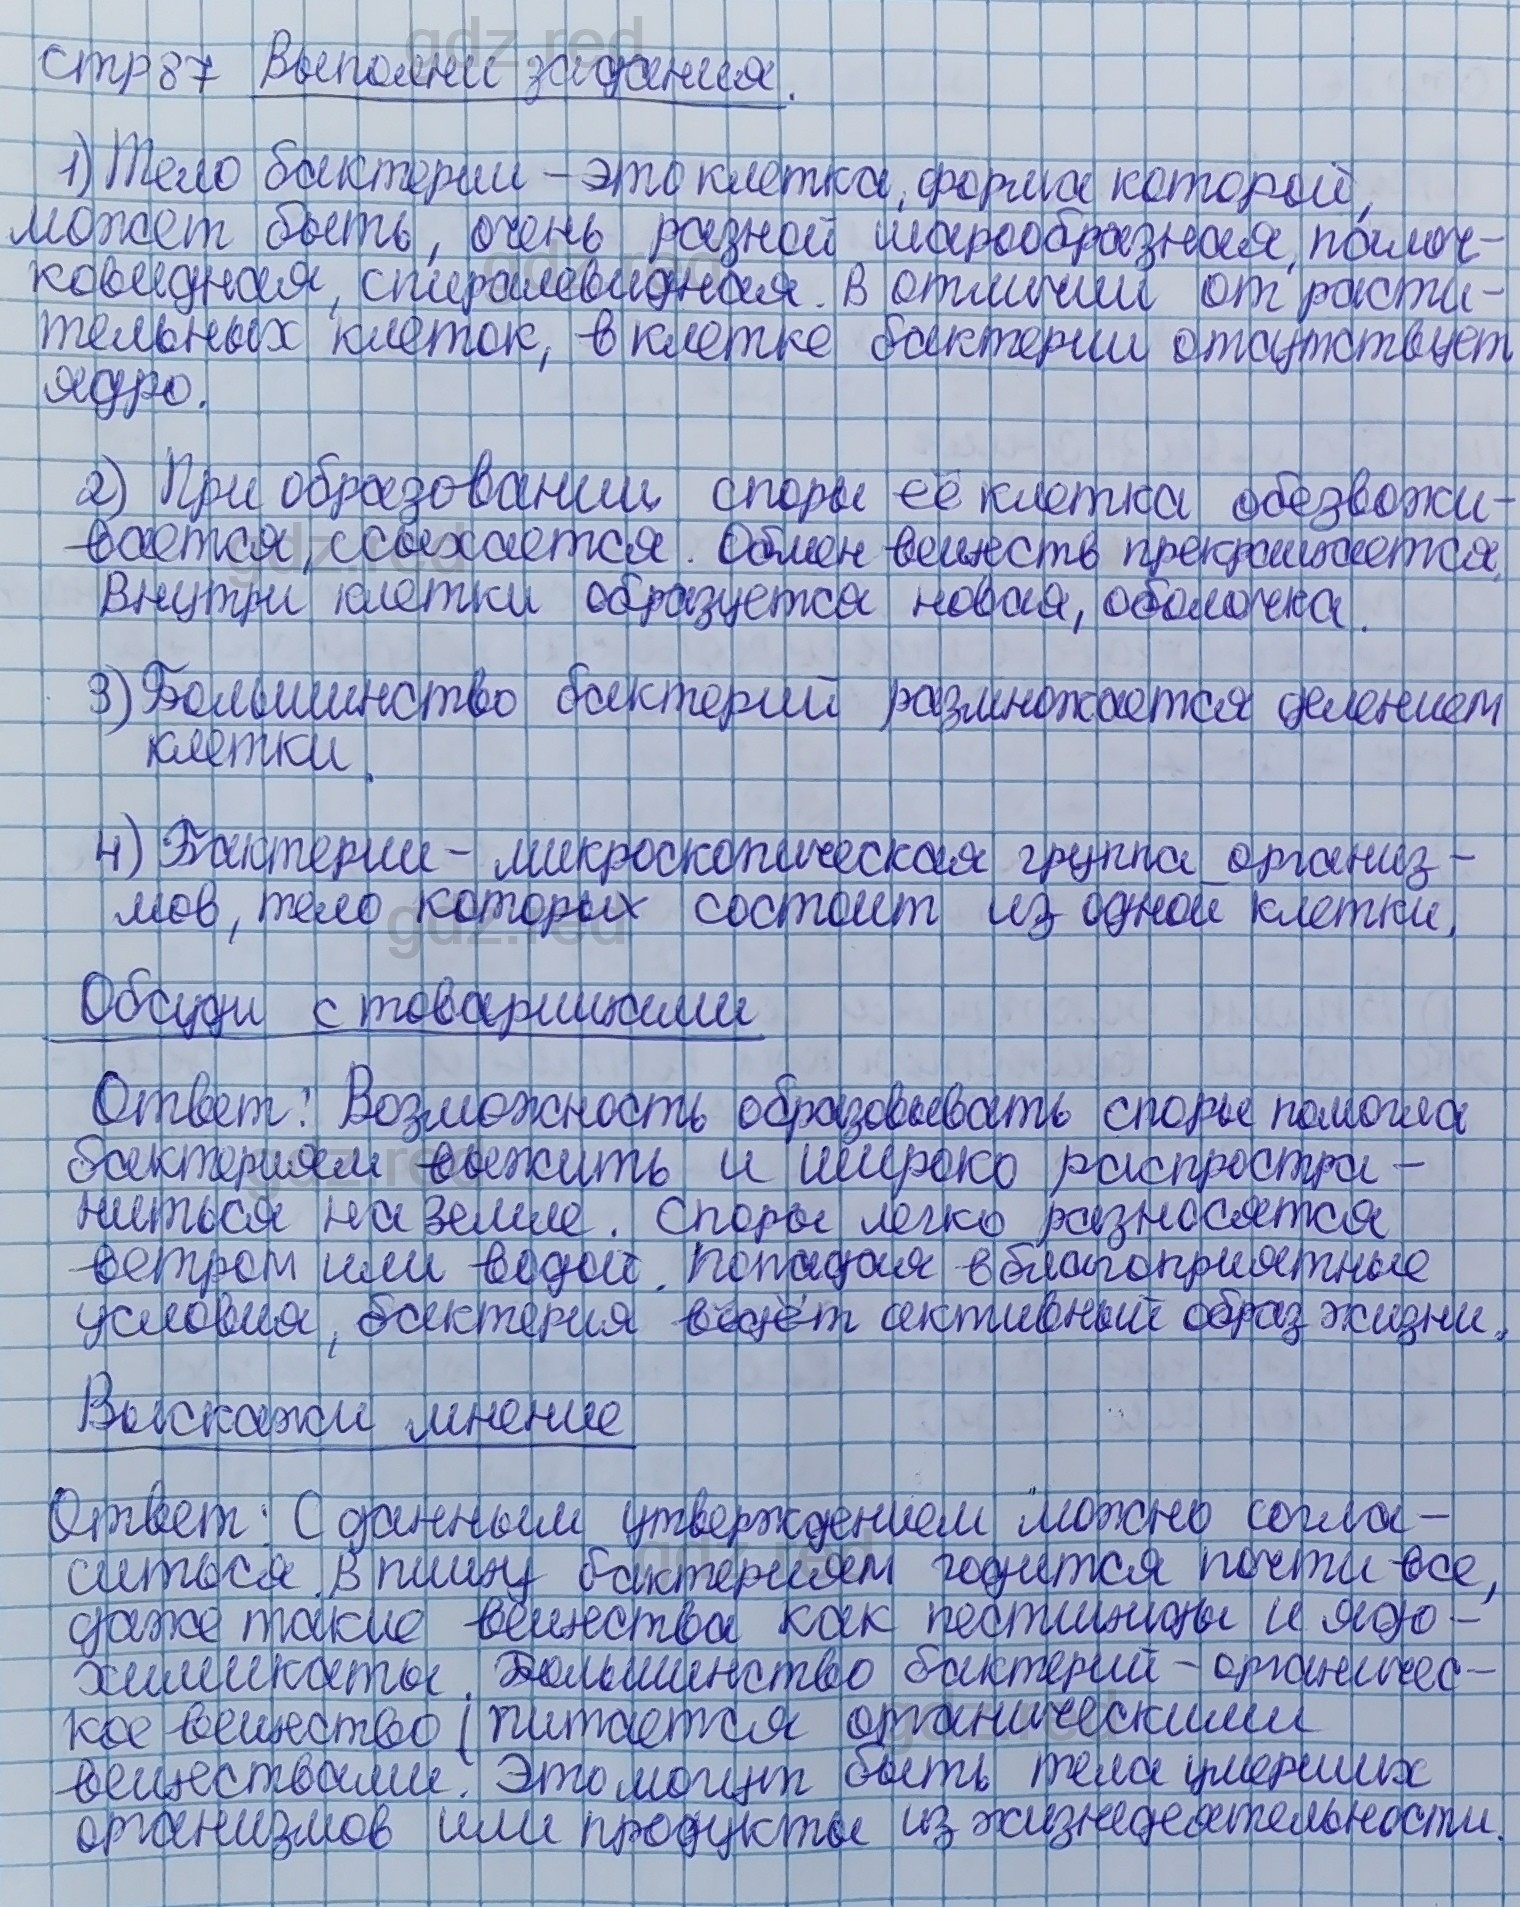 стр 87 Выполни задания.
1) Тело бактерии – это клетка, форма которой,
может быть, очень разной шарообразная, палоч-
ковидная, спиралевидная. В отличии от расти-
тельных клеток, в клетке бактерии отсутствует
ядро.
2) При образовании споры её клетка обезвожи-
вается, ссыхается. Обмен веществ прекращается.
Внутри клетки образуется новая, оболочка.
3) Большинство бактерий размножается делением
клетки.
4) Бактерии – микроскопическая группа организ-
мов, тело которых состоит из одной клетки.
Обсуди с товарищами
Ответ: Возможность образовывать споры помогла
бактериям выжить и широко распростра-
ниться на земле. Споры легко разносятся
ветром или водой. Попадая в благоприятные
условия, бактерия ведёт активный образ жизни.
Выскажи мнение
Ответ: С данным утверждением можно согла-
ситься. В пищу бактериям годится почти все,
даже такие вещества как пестициды и ядо-
химикаты. Большинство бактерий – органичес-
кое вещество (питается органическими
веществами. Это могут быть тела умерших
организмов или продукты из жизнедеятельности.
gdz.red
gdz.red
gdz.red
gdz.red
gdz.red
gdz.red
gdz.red